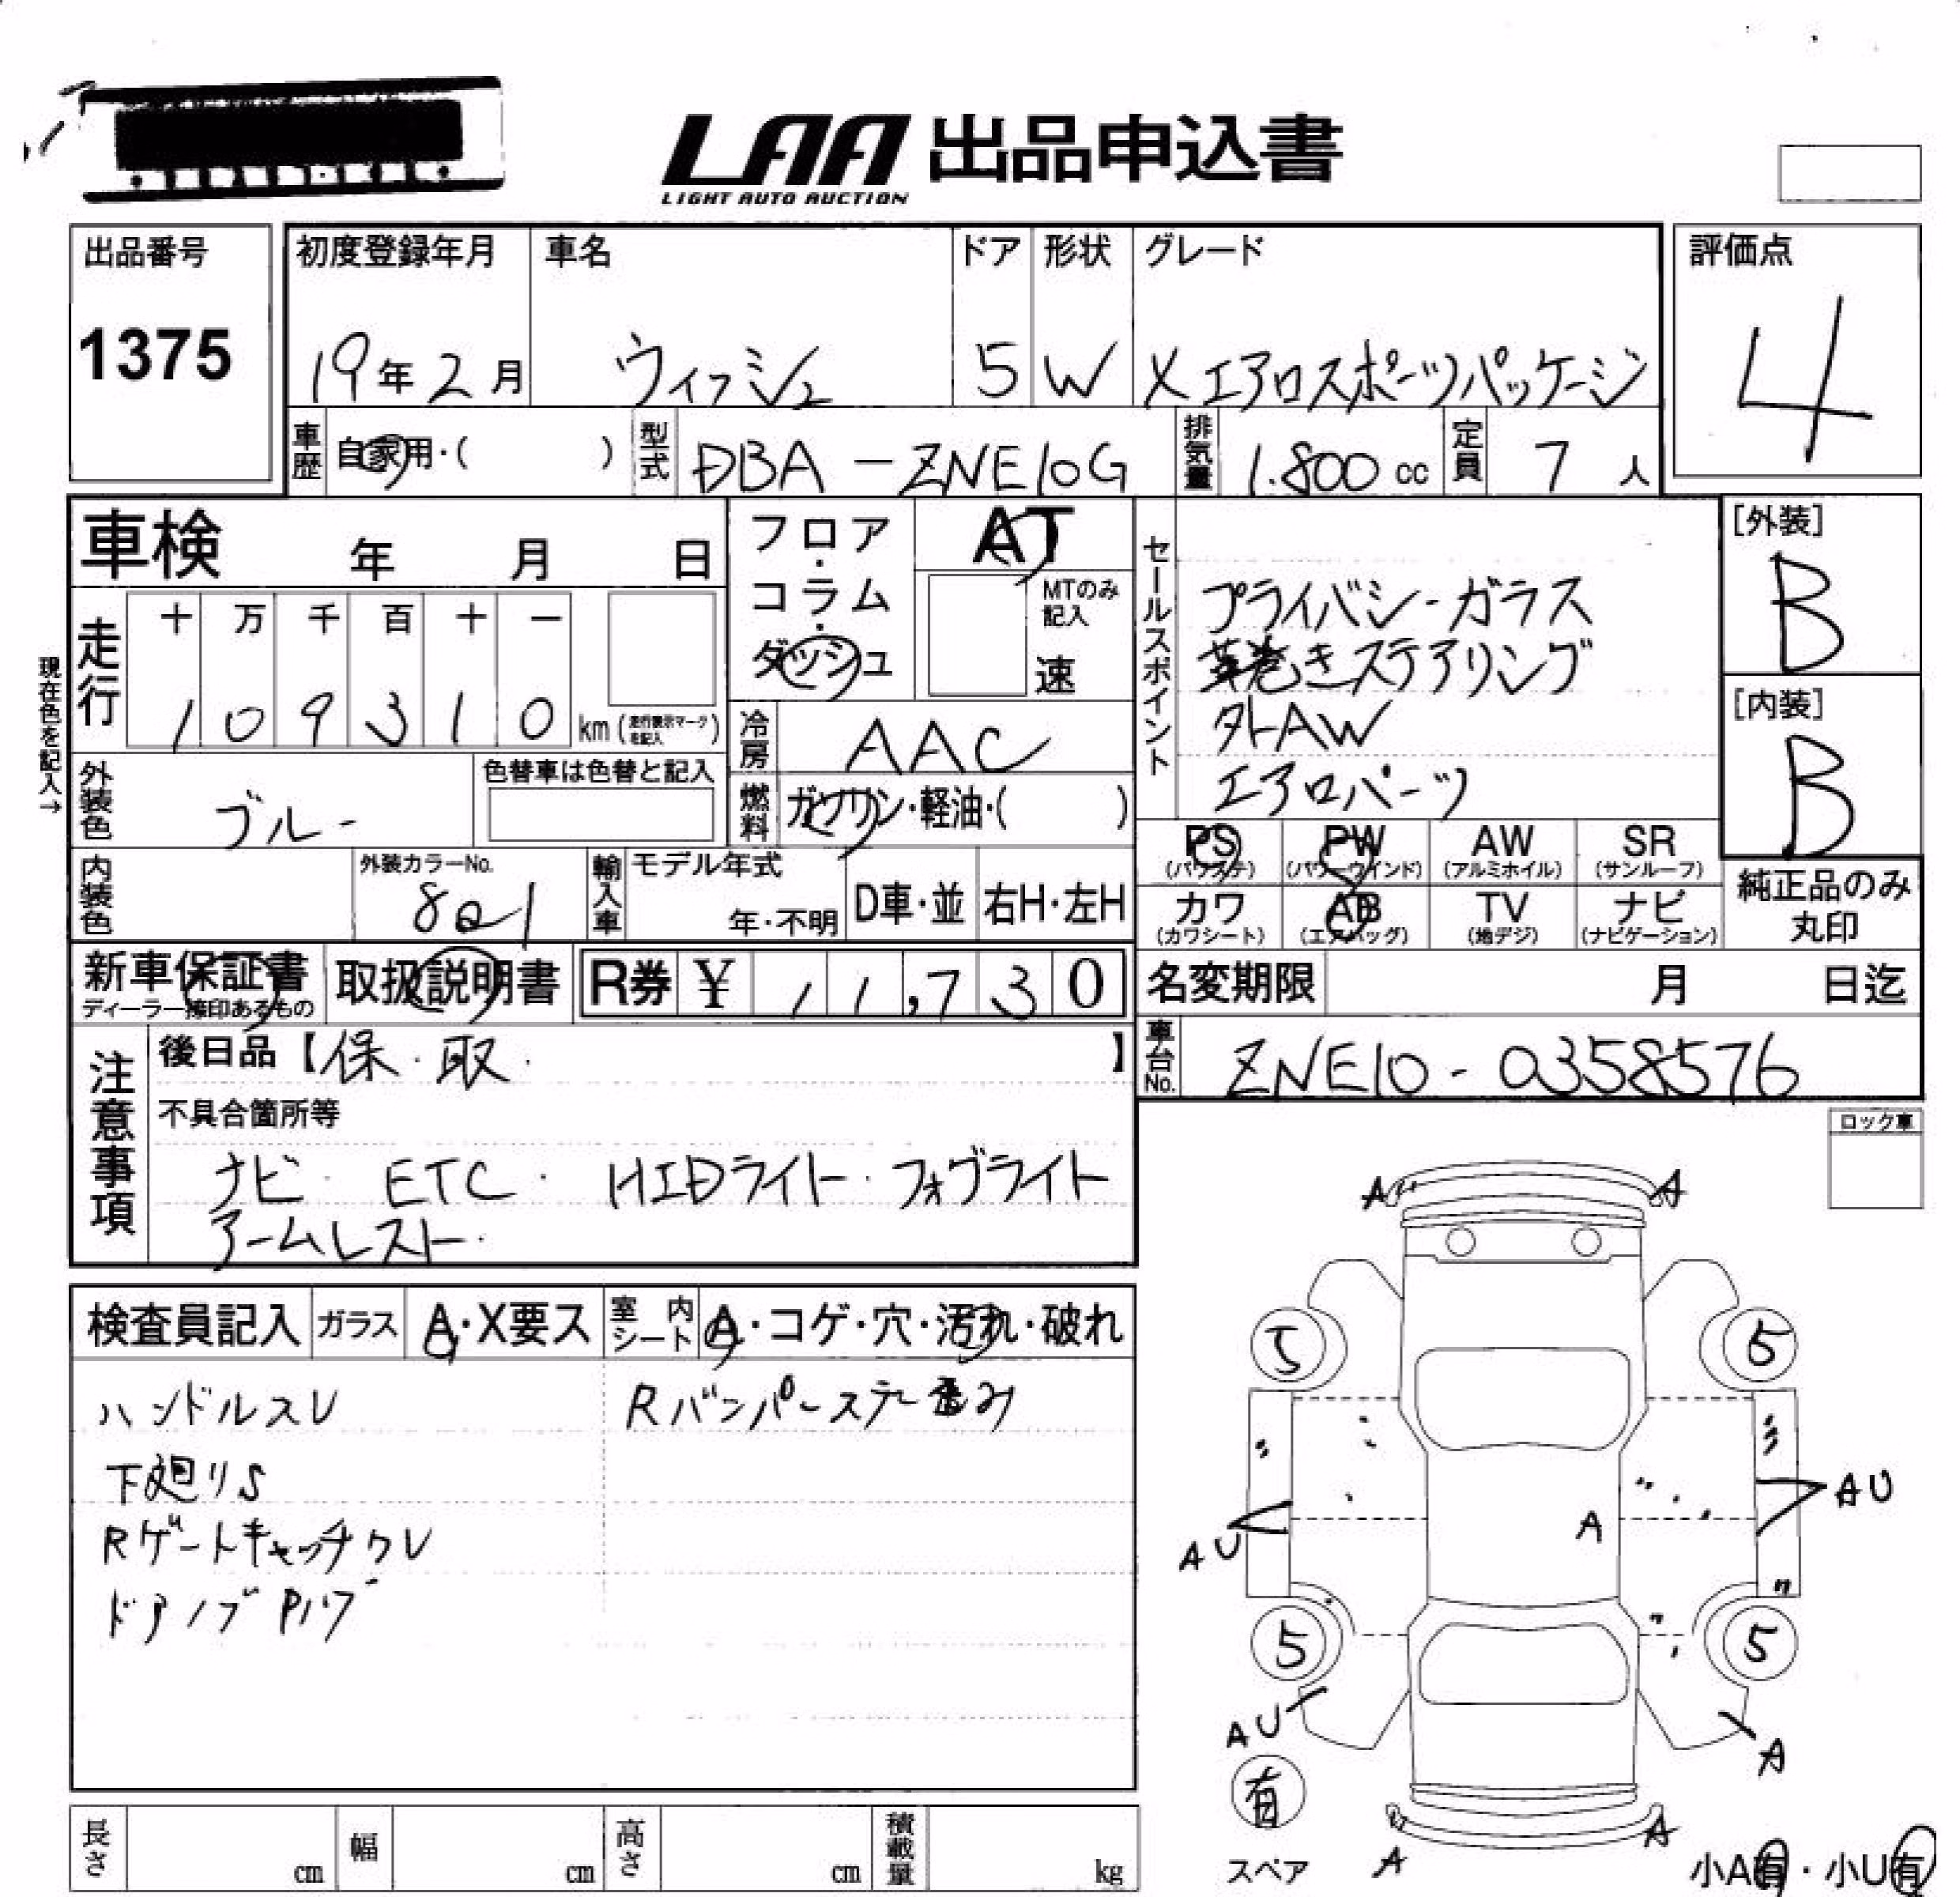 LAA 出品申込書
LIGHT AUTO AUCTION
出品番号
1375
初度登録年月
19年2月
車名
ウィッシュ
ドア
5
形状
W
グレード
Xエアロスポーツパッケージ
評価点
4
車歴
自家用・( )
型式
DBA-ZNE10G
排気量
1.800 cc
定員
7人
車検 年 月 日
フロア・コラム・ダッシュ
AT
MTのみ記入
速
セールスポイント
プライバシーガラス
革巻きステアリング
外AW
エアロパーツ
[外装]
B
[内装]
B
現在色を記入→
走行
十 万 千 百 十 一
1 0 9 3 1 0 km (走行表示マークを記入)
冷房
AAC
外装色
ブルー
色替車は色替と記入
燃料
ガソリン・軽油・( )
PS (パワステ)
PW (パワーウインド)
AW (アルミホイル)
SR (サンルーフ)
内装色
外装カラーNo.
8Q1
輸入車
モデル年式
年・不明
D車・並
右H・左H
カワ (カワシート)
AB (エアバッグ)
TV (地デジ)
ナビ (ナビゲーション)
純正品のみ丸印
新車保証書
ディーラー捺印あるもの
取扱説明書
R券 ¥ 11,730
名変期限 月 日迄
車台No.
ZNE10-0358576
注意事項
後日品【保・取・ 】
不具合箇所等
ナビ・ETC・HIDライト・フォグライト
アームレスト・
ロック車
検査員記入
ガラス
A・X要ス
室内シート
A・コゲ・穴・汚れ・破れ
ハンドルスレ
Rバンパーステー歪み
下廻りS
RゲートキャッチクV
ドアノブPハゲ
A
A
5
5
AU
AU
A
5
5
AU
A
有
スペア
A
A
小A有・小U有
長さ cm
幅 cm
高さ cm
積載量 kg